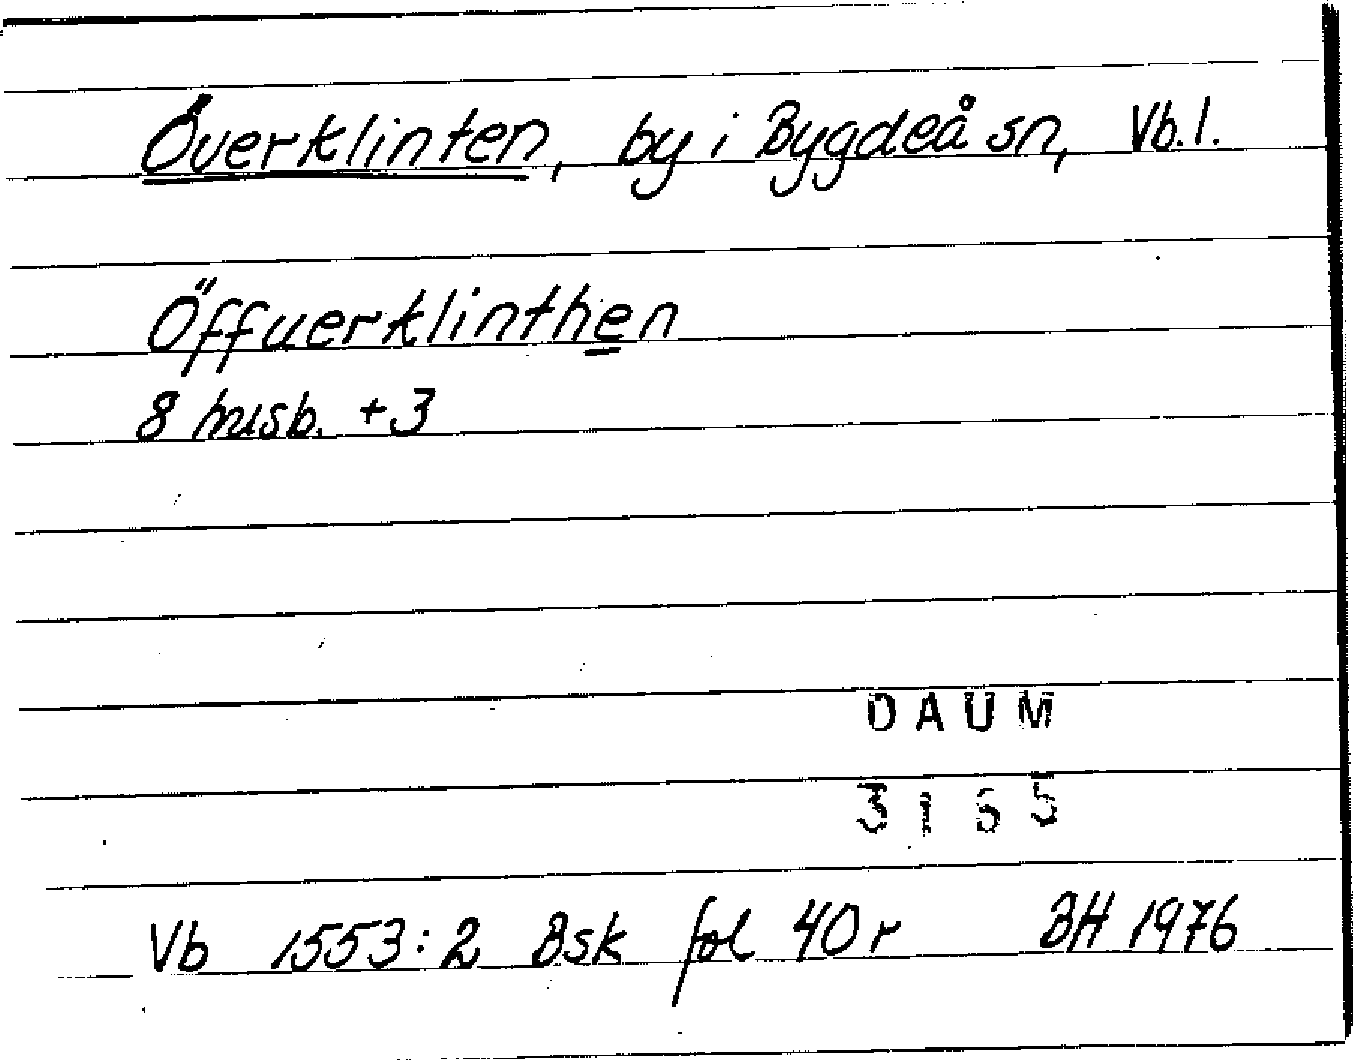 Överklinten, by i Bygdeå sn, Vb.l.
Öffuerklinthen
8 husb. +3
DAUM
3165
Vb 1553:2 Bsk fol 40r BH 1976